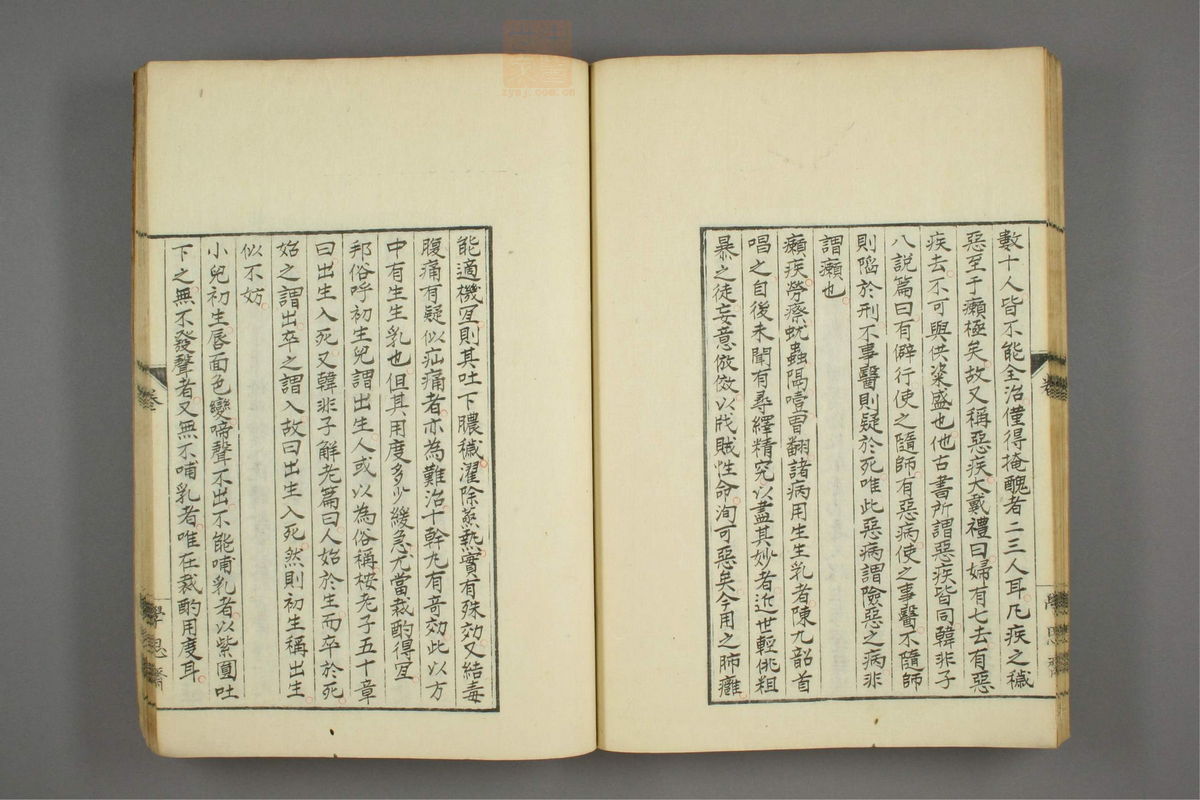 數十人皆不能全治僅得掩醜者二三人耳凡疾之穢
惡至于癩極矣故又稱惡疾大戴禮曰婦有七去有惡
疾去不可與供粢盛也他古書所謂惡疾皆同韓非子
八說篇曰有僻行使之隨師有惡病使之事醫不隨師
則陷於刑不事醫則疑於死唯此惡病謂險惡之病非
謂癩也
癩疾勞瘵蚘蟲隔噎胃翻諸病用生生乳者陳九韶首
唱之自後未聞有尋繹精究以盡其妙者近世輕佻粗
暴之徒妄意倣傚以戕賊性命洵可惡矣今用之肺癰
能適機宜則其吐下膿穢濯除蒸熱實有殊効又結毒
腹痛有疑似疝痛者亦為難治十幹丸有奇効此以方
中有生生乳也但其用度多少緩急尤當裁酌得宜
邦俗呼初生兒謂出生人或以為俗稱桉老子五十章
曰出生入死又韓非子解老篇曰人始於生而卒於死
始之謂出卒之謂入故曰出生入死然則初生稱出生
似不妨
小兒初生唇面色變啼聲不出不能哺乳者以紫圓吐
下之無不發聲者又無不哺乳者唯在裁酌用度耳
卷
學思齋
zysj.com.cn